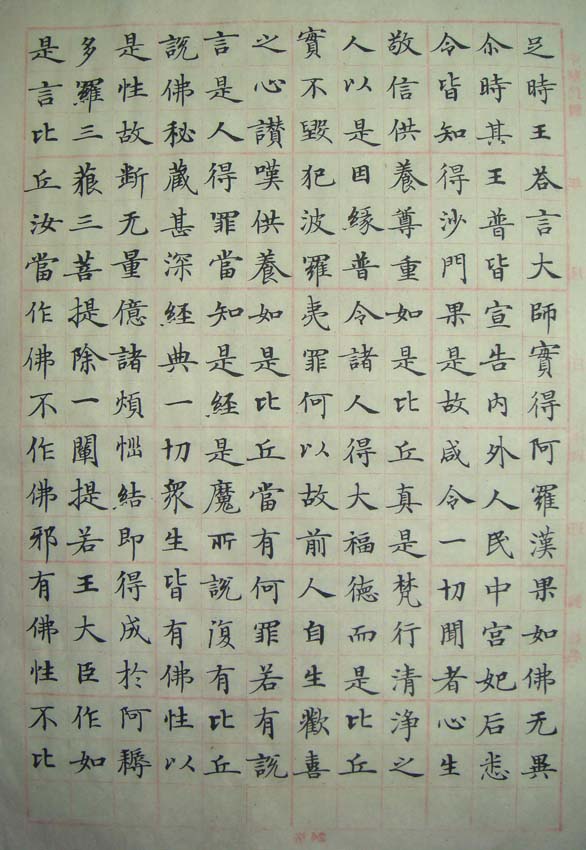 足時王荅言大師實得阿羅漢果如佛无異
尒時其王普皆宣告內外人民中宮妃后悉
令皆知得沙門果是故咸令一切聞者心生
敬信供養尊重如是比丘真是梵行清淨之
人以是因緣普令諸人得大福德而是比丘
實不毀犯波羅夷罪何以故前人自生歡喜
之心讃嘆供養如是比丘當有何罪若有說
言是人得罪當知是經是魔所說復有比丘
說佛秘藏甚深經典一切眾生皆有佛性以
是性故斷无量億諸煩惱結即得成於阿耨
多羅三藐三菩提除一闡提若王大臣作如
是言比丘汝當作佛不作佛邪有佛性不比